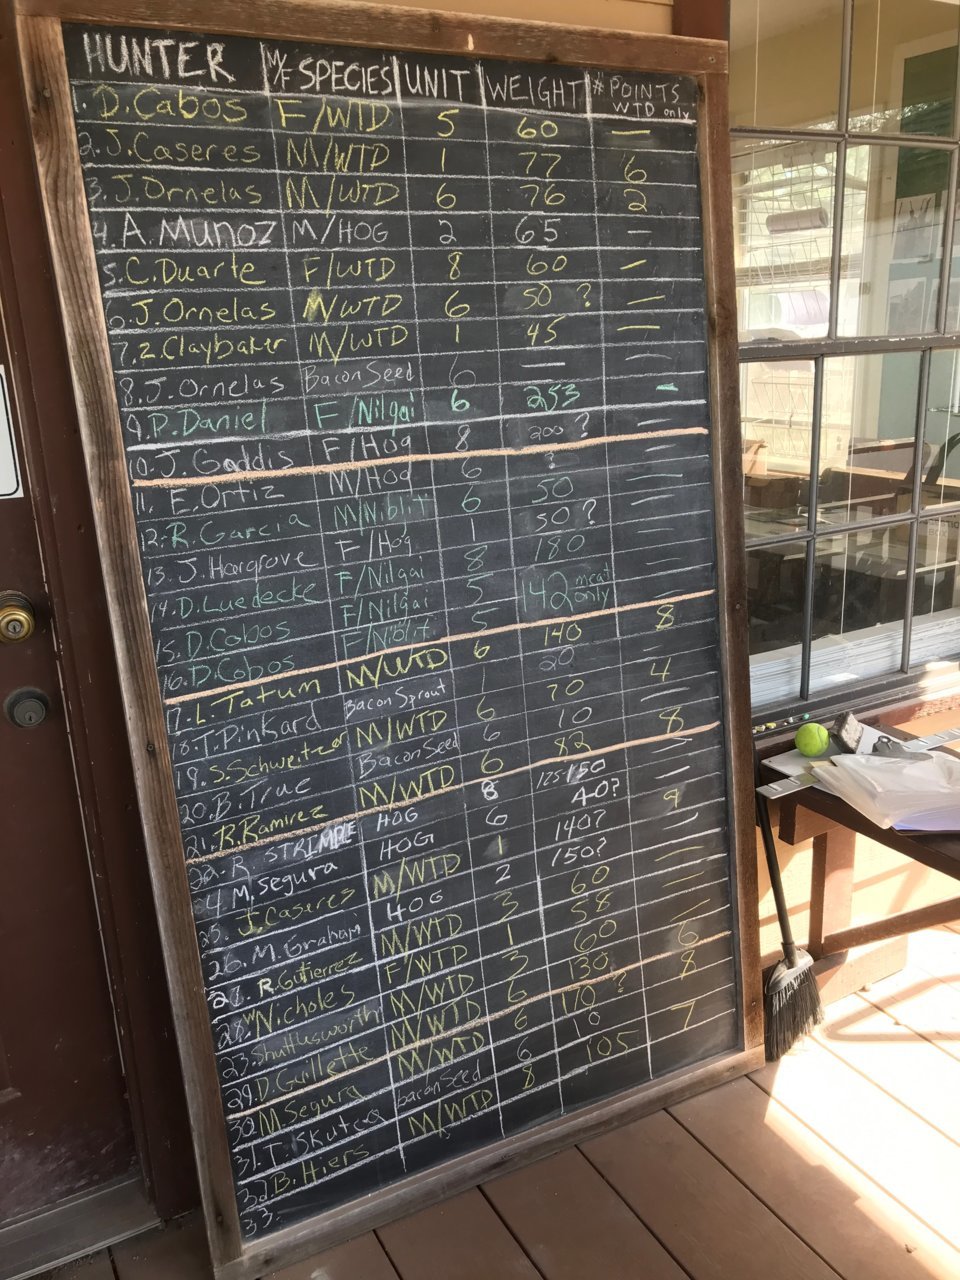 HUNTER M/F SPECIES UNIT WEIGHT # POINTS WTD only
1. D. Cabos F/WTD 5 60 —
2. J. Caseres M/WTD 1 77 6
3. J. Ornelas M/WTD 6 76 2
4. A. Munoz M/HOG 2 65 —
5. C. Duarte F/WTD 8 60 —
6. J. Ornelas M/WTD 6 50 ? —
7. Z. Claybaker M/WTD 1 45 —
8. J. Ornelas Bacon Seed 6 — —
9. P. Daniel F/Nilgai 6 253 —
10. J. Gaddis F/Hog 8 200 ? —
11. E. Ortiz M/Hog 6 ? —
12. R. Garcia M/Niblit 6 50 —
13. J. Hargrove F/Hog 1 50 ? —
14. D. Luedecke F/Nilgai 8 180 —
15. D. Cobos F/Nilgai 5 142 meat only —
16. D. Cobos F/Niblit 5
17. L. Tatum M/WTD 6 140 8
18. T. Pinkard Bacon Sprout 1 20 —
19. S. Schweitzer M/WTD 6 70 4
20. B. True Bacon Seed 6 10 —
21. R. Ramirez M/WTD 6 82 8
22. R. STRIMPLE HOG 8 125 150 —
M. Segura HOG 6 40? —
25. J. Caseres M/WTD 1 140? 9
26. M. Graham HOG 2 150? —
27. R. Gutierrez M/WTD 3 60 —
28. Nicholes F/WTD 1 58 —
Shuttlesworth M/WTD 3 60 —
29. D. Guillette M/WTD 6 130 6
30. M. Segura M/WTD 6 170 ? 8
31. T. bacon Seed 6 10
32. B. Hiers M/WTD 8 105 7
33.